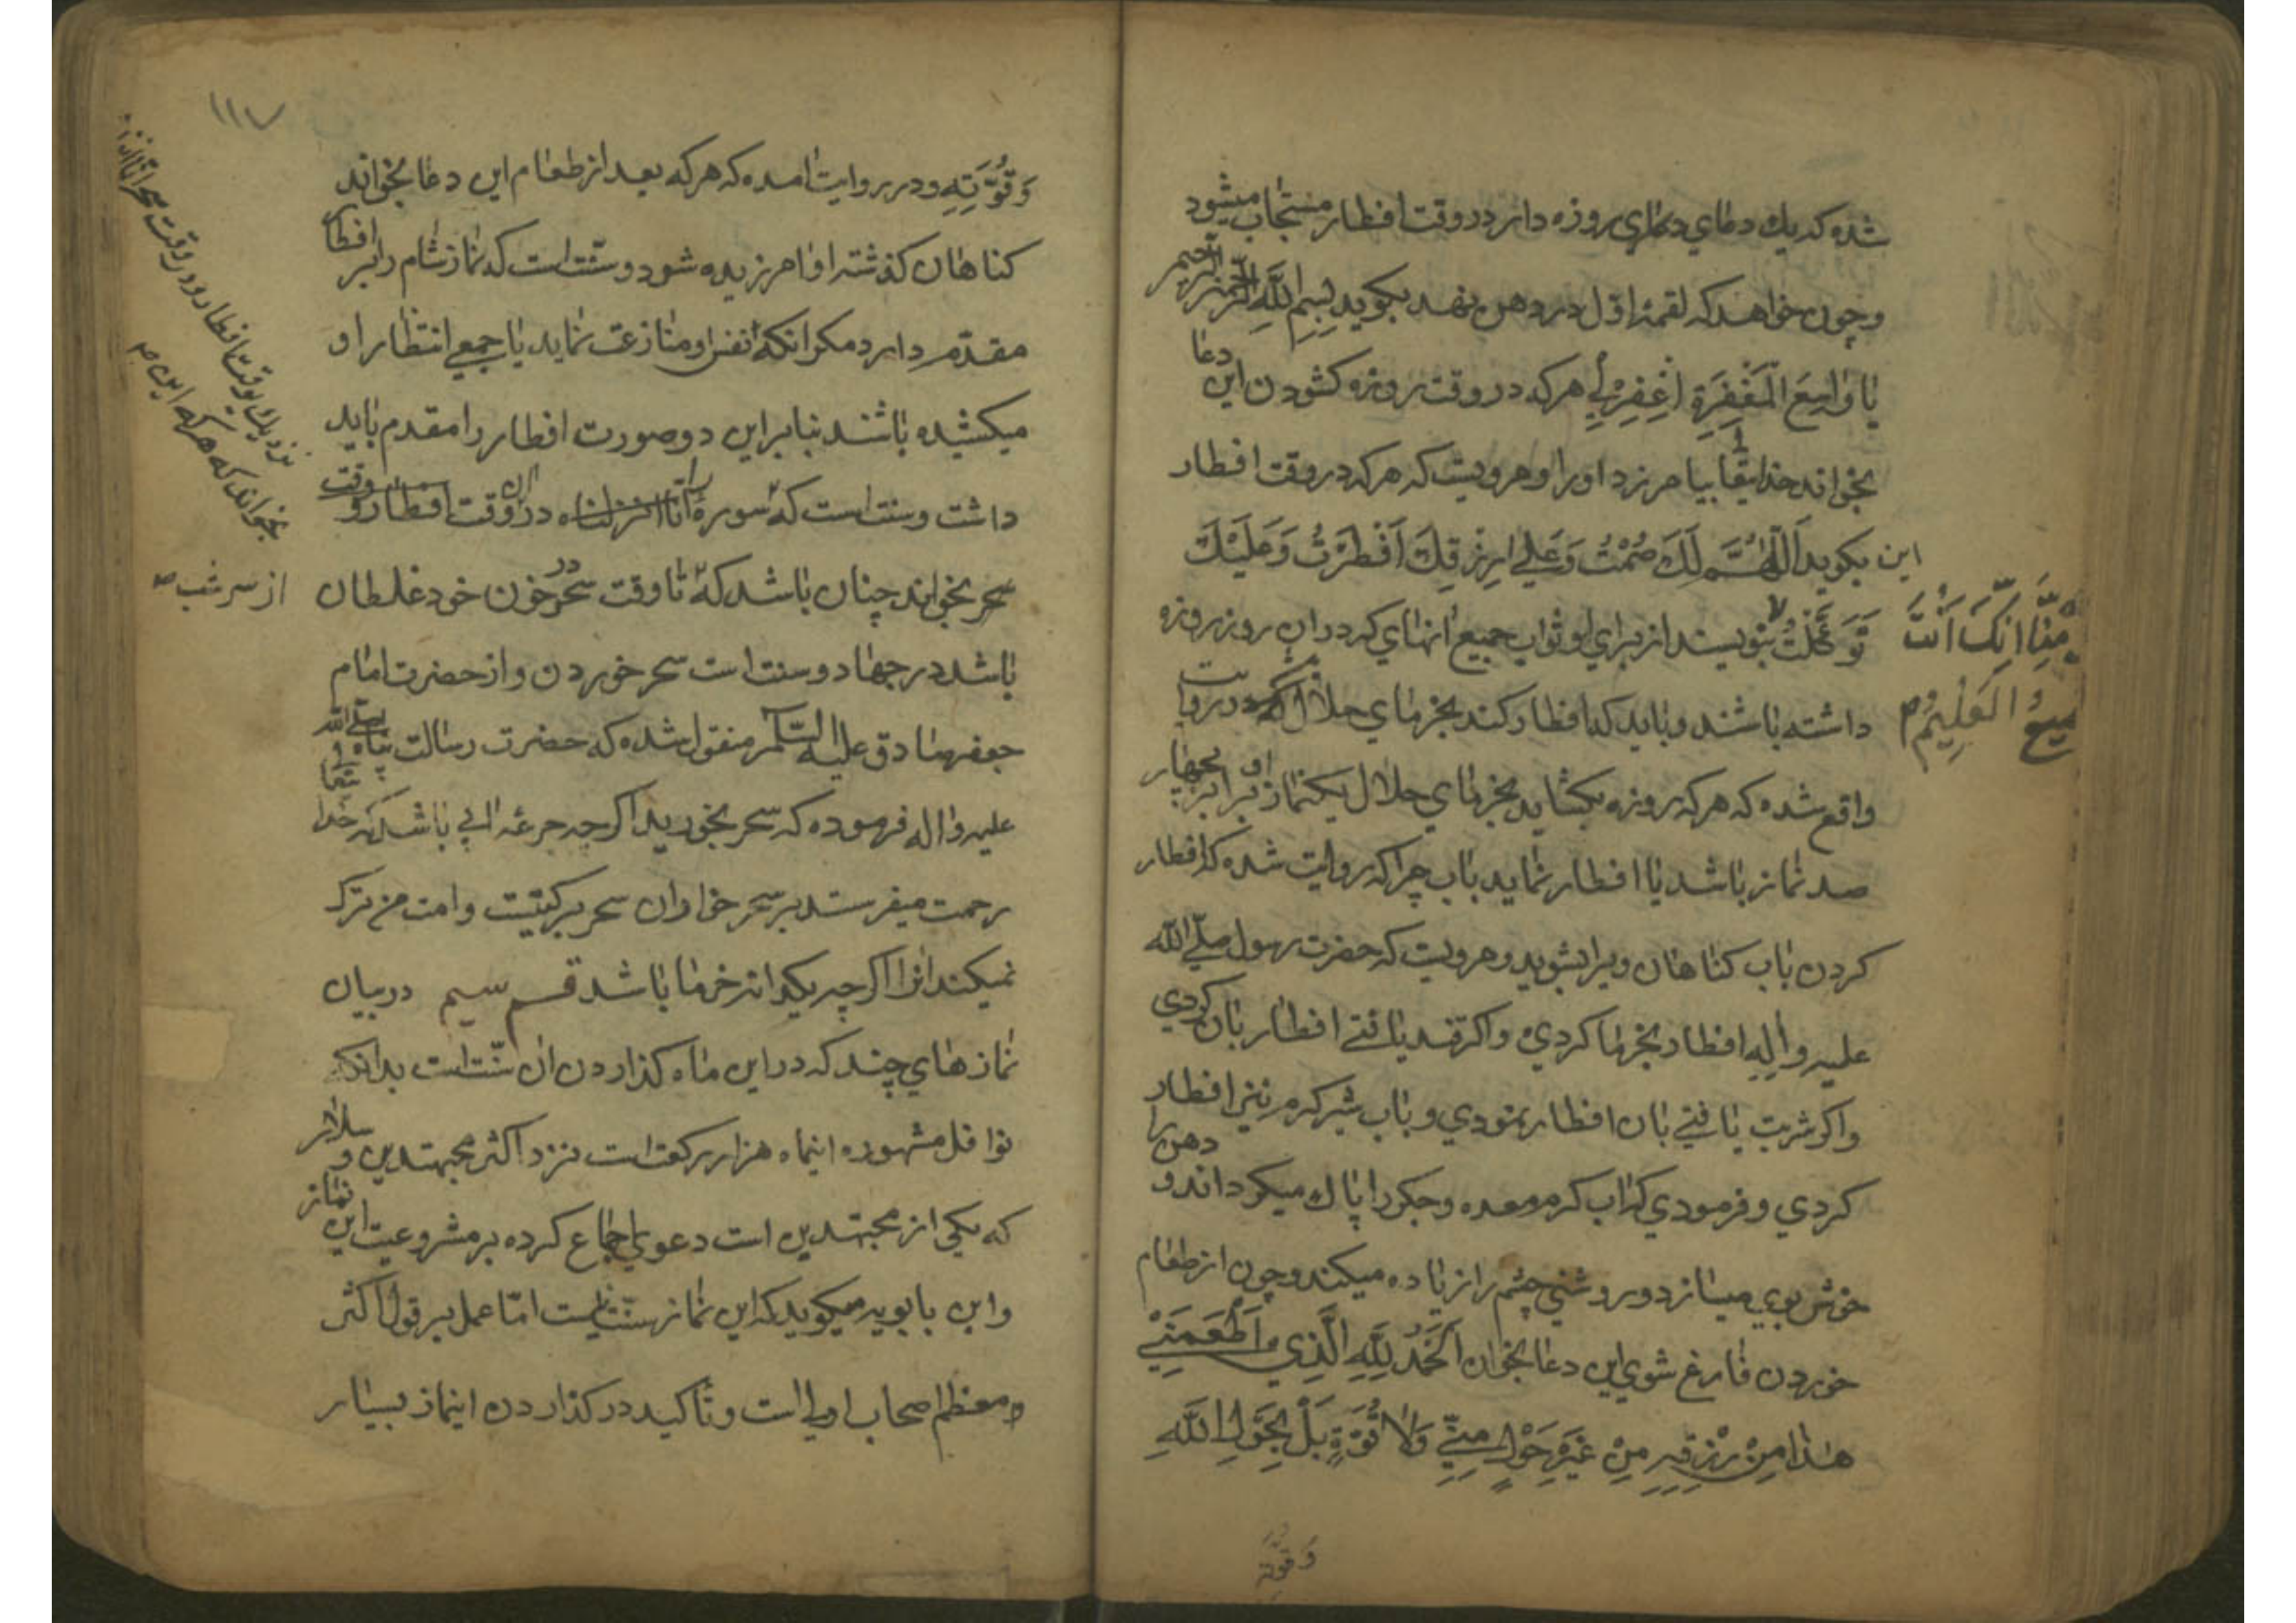 شده که یك دعاي دعاي روزه دار در وقت افطار مستجاب میشود
وچون خواهد که لقمۀ اوّل در دهن نهد بکوید بِسمِ اللّٰهِ الرَّحمٰنِ الرَّحیم
یٰا وٰاسِعَ الْمَغْفِرَةِ اِغْفِرْلِي هر که در وقت روزه کشودن این دعا
بخواند خدایتعا بیامرزد او را و مرویست که هر که در وقت افطار
این بکوید اَللّٰهُمَّ لَكَ صُمْتُ وَعَلٰي رِزْقِكَ اَفْطَرْتُ وَعَلَیْكَ
تَوَکَّلْتُ بنویسند از براي او ثواب جمیع انهاي که در ان روز روزه
مِنّٰا اِنَّكَ اَنْتَ
داشته باشند و باید که افطار کند بخرماي حلال که در روایت
میعُ الْعَلِیْمُ
واقع شده که هر که روزه بکشاید بخرماي حلال یکنماز او برابر بچهار
صد نماز باشد یا افطار نماید باب چرا که روایت شده که افطار
کردن باب کناهان ویرا بشوید و مرویست که حضرت رسول صلّي اللّه
علیه و اله افطار بخرما کردي و اکر قند یافتے افطار بان کردي
واکر شربت یافتے بان افطار نمودي و باب شیر کرم نیز افطار
کردي و فرمودي که اب کرم معده و جکر را پاك میکرداند و دهن را
خوش بوي میسازد و روشني چشم را زیاده میکند و چون از طعام
خوردن فارغ شوي این دعا بخوان اَلْحَمْدُ لِلّٰهِ الَّذِي اَطْعَمَنِي
هٰذٰا مِنْ رِزْقِهِ مِنْ غَیْرِ حَوْلٍ مِنِّي وَلاٰ قُوَّةٍ بَلْ بِحَوْلِ اللّٰهِ
وَقُوَّتِهِ
۱۱۷
وَقُوَّتِهِ و در روایت امده که هر که بعد از طعام این دعا بخواند
کناهان کذشته او امرزیده شود و سنّت است که نماز شام را بر افطار
مقدّم دارد مکر انکه نفس او منازعت نماید یا جمعي انتظار او
میکشیده باشند بنا براین دو صورت افطار را مقدم باید
داشت وسنت است که سورۀ انا انزلناه در ان وقت افطار و وقت
نزدیك بوقت افطار و در وقت سحر انا انزلناه
بخواند که هر که این
سحر بخواند چنان باشد که تا وقت سحر در خون خود غلطان
از سر شب
باشد در جهاد و سنت است سحر خوردن و از حضرت امام
جعفر صادق علیه السّلام منقول شده که حضرت رسالت پناه صلي اللّه
علیه و اله فرموده که سحر بخورید اکر چه جرعه ابي باشد که خداي تعا
رحمت میفرستد بر سحر خواران سحر برکتیست و امت من ترك
نمیکند انرا اکر چه یکدانه خرما باشد قسم سیم در بیان
نمازهاي چند که در این ماه کذاردن ان سنّت است بدانکه
نوافل مشهوره اینماه هزار رکعت است نزد اکثر مجتهدین و سلار
که یکي از مجتهدین است دعوي اجماع کرده بر مشروعیت این نماز
و ابن بابویه میکوید که این نماز سنّت نیست امّا عمل بر قول اکثر
و معظم اصحاب اولي است و تأکید در کذاردن اینماز بسیار